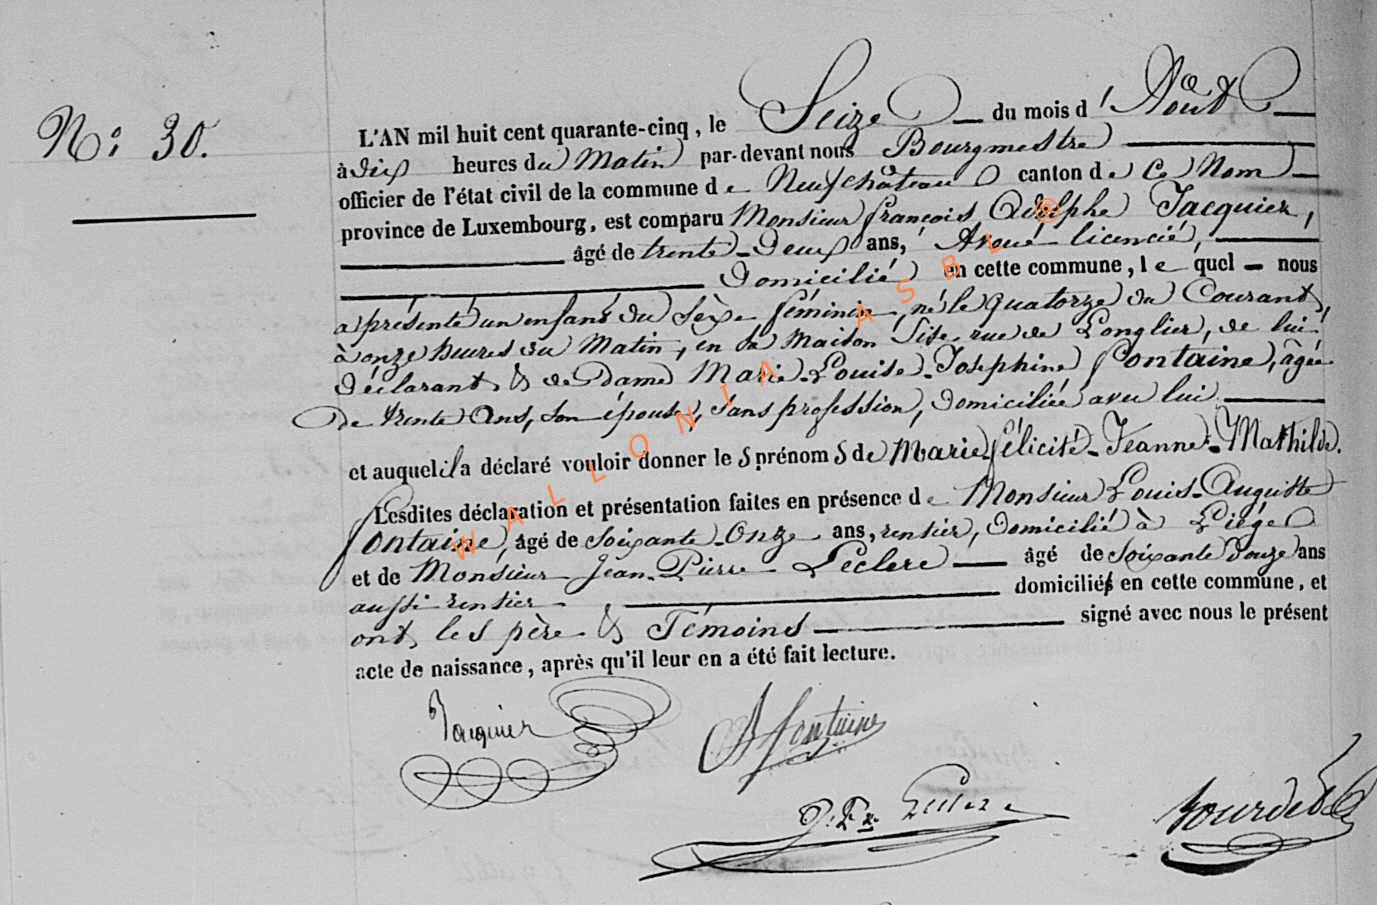 N° 30.
L'AN mil huit cent quarante-cinq, le Seize du mois d'Août
à dix heures du Matin par-devant nous Bourgmestre
officier de l'état civil de la commune de Neufchâteau canton de Ce Nom
province de Luxembourg, est comparu Monsieur françois Adolphe Jacquier,
âgé de trente-Deux ans, Avoué licencié,
Domicilié en cette commune, lequel nous
a présenté un enfant du Sèxe féminin, né le quatorze du Courant,
à onze heures du Matin, en sa Maison Sise rue de Longlier, de lui
Déclarant & de Dame Marie-Louise-Josephine fontaine, âgée
de trente Ans, son épouse, sans profession, domiciliée avec lui
et auquel il a déclaré vouloir donner les prénoms de Marie-félicité-Jeanne-Mathilde.
Lesdites déclaration et présentation faites en présence de Monsieur Louis-Auguste
fontaine, âgé de soixante-Onze ans, rentier, domicilié à Liége
et de Monsieur Jean-Pierre Leclerc âgé de soixante douze ans
aussi rentier domiciliés en cette commune, et
ont les père & Témoins signé avec nous le présent
acte de naissance, après qu'il leur en a été fait lecture.
Jacquier
fontaine
WALLONIA ASBL ©